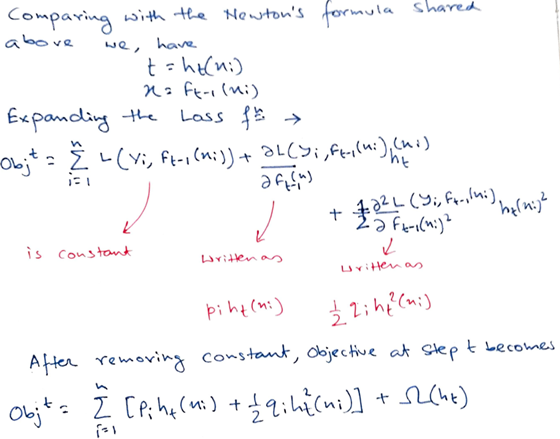 Comparing with the Newton's formula shared
above we, have
t = ht(xi)
x = Ft-1(xi)
Expanding the Loss fn →
Obj^t = Σ_{i=1}^{n} L(yi, Ft-1(xi)) + ∂L(yi, Ft-1(xi)) / ∂Ft-1(x) ht(xi)
+ 1/2 ∂²L(yi, Ft-1(xi)) / ∂Ft-1(xi)² ht(xi)²
is constant
written as
written as
pi ht(xi)
1/2 qi ht²(xi)
After removing constant, Objective at step t becomes
Obj^t = Σ_{i=1}^{n} [pi ht(xi) + 1/2 qi ht²(xi)] + Ω(ht)